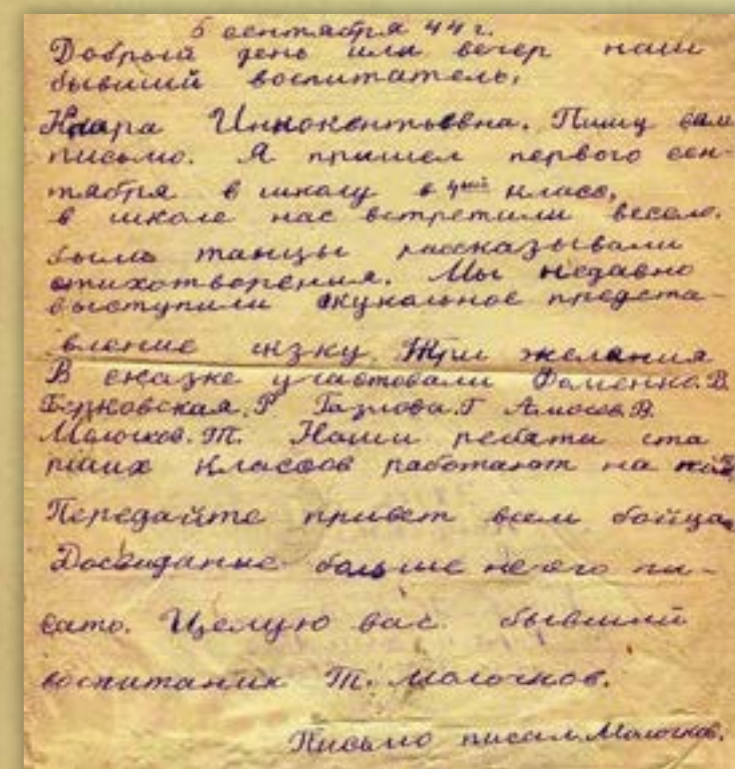 5 сентября 44 г.
Добрый день или вечер наш
бывший воспитатель,
Клара Иннокентьевна. Пишу вам
письмо. Я пришел первого сен-
тября в школу в 4ый класс,
в школе нас встретили весело.
были танцы рассказывали
стихотворения. Мы недавно
выступили кукольное предста-
вление Три желания
В сказке участвовали Фоменко.В.
Берковская.Р Газлова.Г Амосов.В.
Молочков.Т. Наши ребята ста
рших классов работают на
Передайте привет всем бойцам
Досвидание больше нечего пи-
сать. Целую вас бывший
воспитаник Т. Молочков.
Письмо писал Молочков.